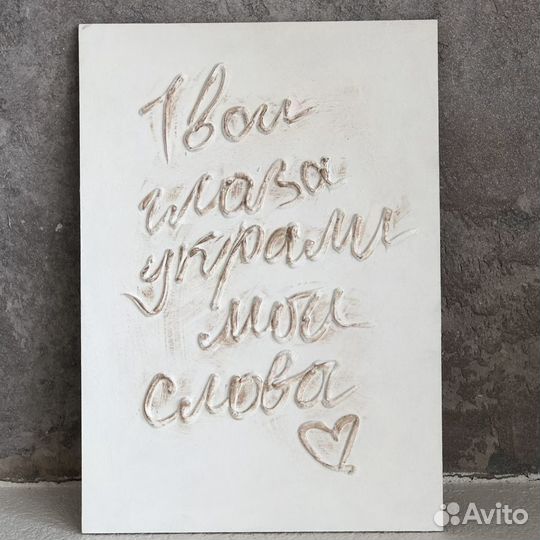 Твои
глаза
украли
мои
слова
Avito